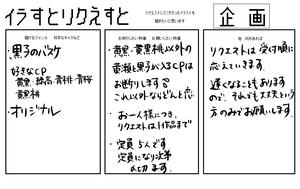 イラすとリクえすと
リクエストしてくださったイラストを
描きたいと思います
企画
描けるジャンル 好きなキャラなど
・黒子のバスケ
好きなCP
黄黒・緑高・青桃・青桜
黄黒桃
・オリジナル
お断りしたい特徴 お願いしたい特徴
・黄黒・黄黒桃以外の
黄瀬と黒子が入るCPは
お断りします
これ以外ならどんと恋
・お一人様につき、
リクエストは1作品まで
・定員5人です
定員になり次第
〆切ます。
他、何かあれば
リクエストは受付順に
応えていきます
遅くなることもあります
ので、それでも大丈夫という
方のみでお願いします。